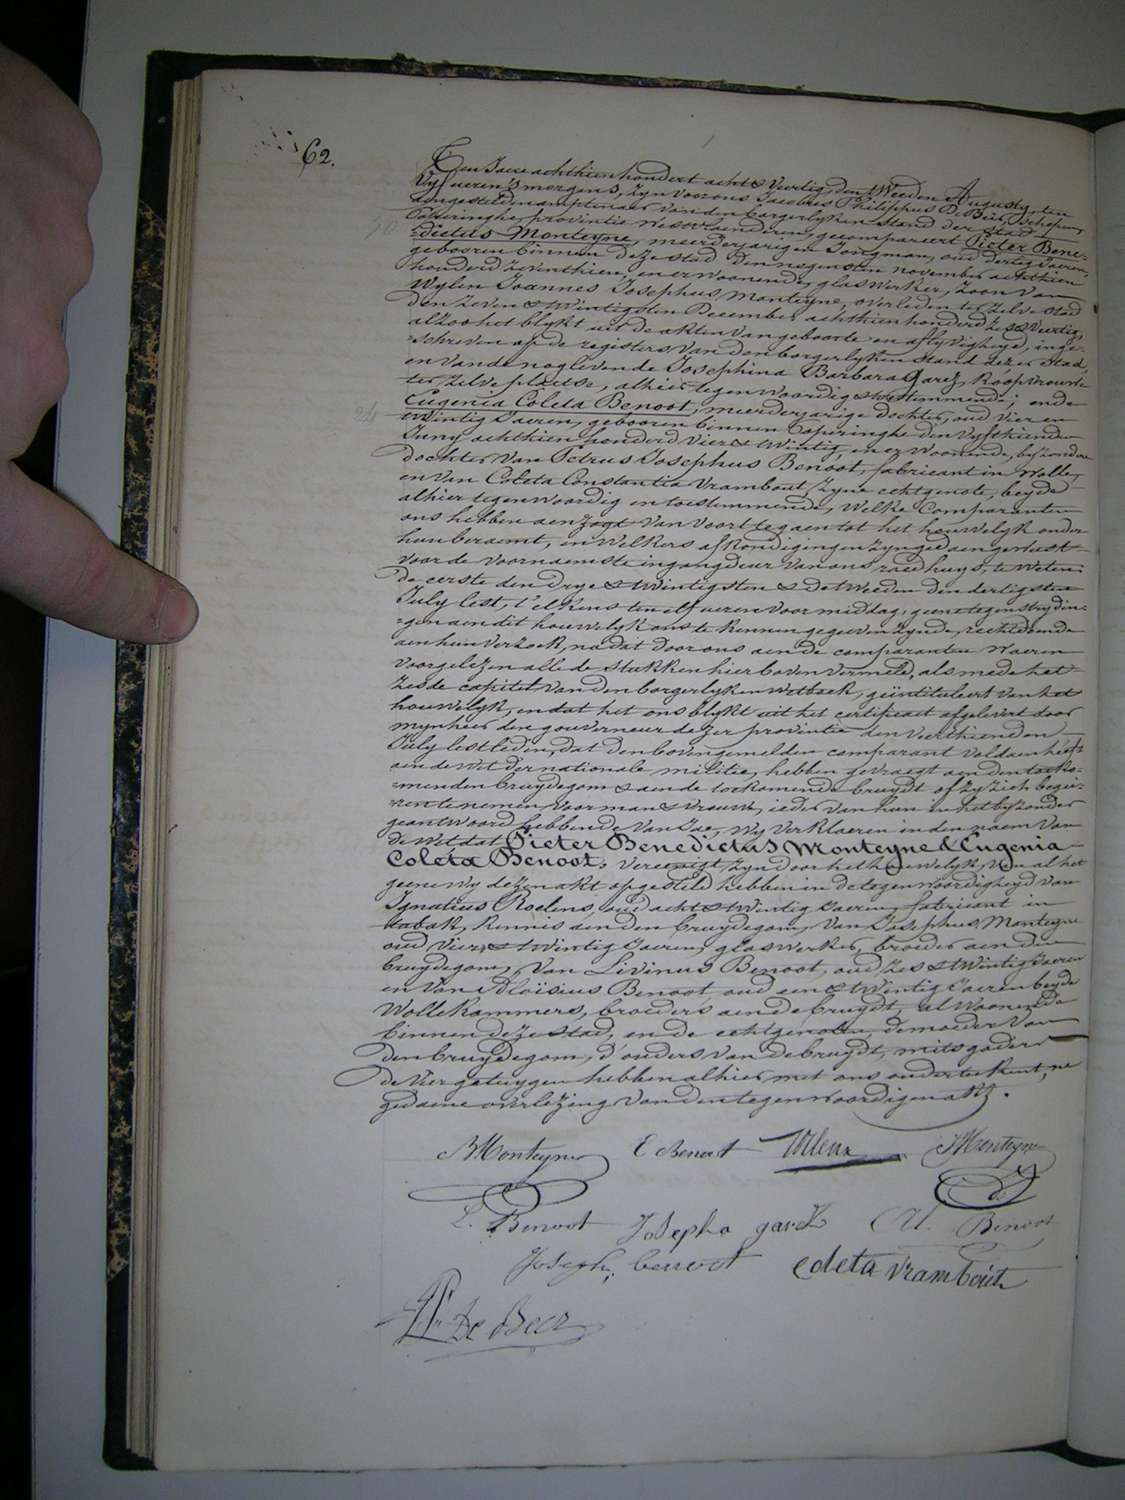 62.
Ten Jaere achthien hondert acht & Veertig, den tWeeden Augusty, ten
Vyf ueren 's morgens, Zyn voor ons Jacobus Philippus De Beir, Schepen,
aengestelden amptenaer van den borgerlyken Stand der Stad
30
Poperinghe, provintie Westvlaenderen, gecompareert Pieter Bene-
dictus Monteyne, meerderjarigen Jongman, oud dertig Jaeren,
gebooren binnen deze stad den negensten november achthien
honderd Zeventhien, en er woonende, glaswerker, Zoon van
Wylen Joannes Josephus Monteyne, overleden te Zelve stad
den Zeven & tWintigsten December achthien honderd Zes & Veertig,
alzoo het blykt uit de akten van geboorte en aflyvigheyd, inge-
schreven op de registers van den borgerlyken stand dezer Stad,
en van de nog levende Josephina Barbara Garez, Koopvrouw
ter Zelve plaetse, alhier tegenwoordig & toestimmende; ende
24
Eugenia Coleta Benoot, meerderjarige dochter, oud Vier en
tWintig Jaeren, gebooren binnen Poperinghe den Vyfthienden
Juny achthien honderd Vier & tWintig, en er Woonende, byzondere
dochter van Petrus Josephus Benoot, fabricant in Wolle,
en van Coleta Constantia Vrambout, Zyne echtgenote, beyde
alhier tegenwoordig en toestimmende, Welke Comparanten
ons hebben aenzogt van voort te gaen tot het houwelyk onder
hun beraemt, en Welkers afkondigingen Zyn gedaen geweest
voor de voornaemste ingangdeur van ons raedhuys, te Weten
de eerste den Drye & tWintigsten & De tWeede den dertigsten
July lest, t'elkens ten elf ueren voormiddag, geene tegenstrydin-
gen aen dit houwelyk ons te kennen gegeven Zynde, rechtdoende
aen hun Verzoek, na dat door ons aen de comparanten Waeren
voorgelezen alle de stukken hier boven vermeld, als mede het
Zesde capitel van den borgerlyken Wetboek, geïntituleert van het
houwelyk, en dat het ons blykt uit het certificaet afgelevert door
mynheer den gouverneur dezer provintie den Vierthienden
July lestleden, dat den bovengemelden comparant voldaen heeft
aen de Wet der nationale militie, hebben gevraegt aen den toeko-
menden bruydegom & aen de toekomende bruydt of Zy Zich begee-
ren te nemen voor man & vrouw, ieder van hun in het byzonder
geantwoord hebbende van Jae, Wy Verklaeren in den naem van
de Wet dat Pieter Benedictus Monteyne & Eugenia
Coleta Benoot, vereenigt Zyn door het houwelyk, Van al het
geene Wy dezen akt opgesteld hebben in de tegenwoordigheyd van
Ignatius Roelens, oud acht & tWintig Jaeren, fabricant in
tabak, Kennis aen den bruydegom, Van Josephus Monteyne
oud Vier & tWintig Jaeren, glaswerker, broeder aen den
bruydegom, Van Livinus Benoot, oud Zes & tWintig Jaeren
en Van Aloïsius Benoot, oud een & tWintig Jaeren beyde
Wollekammers, broeders aen de bruydt, al Woonende
binnen deze stad, en de echtgenoten, de moeder van
den bruydegom, d'ouders van de bruydt, mitsgaders
de Vier getuygen hebben alhier met ons onderteekent, na
gedaene overlezing van den tegenwoordigen akt.
B Monteyne E Benoot J Monteyne
L. Benoot Josepha garez Al. Benoot
Joseph benoot coleta vrambout
De Beir